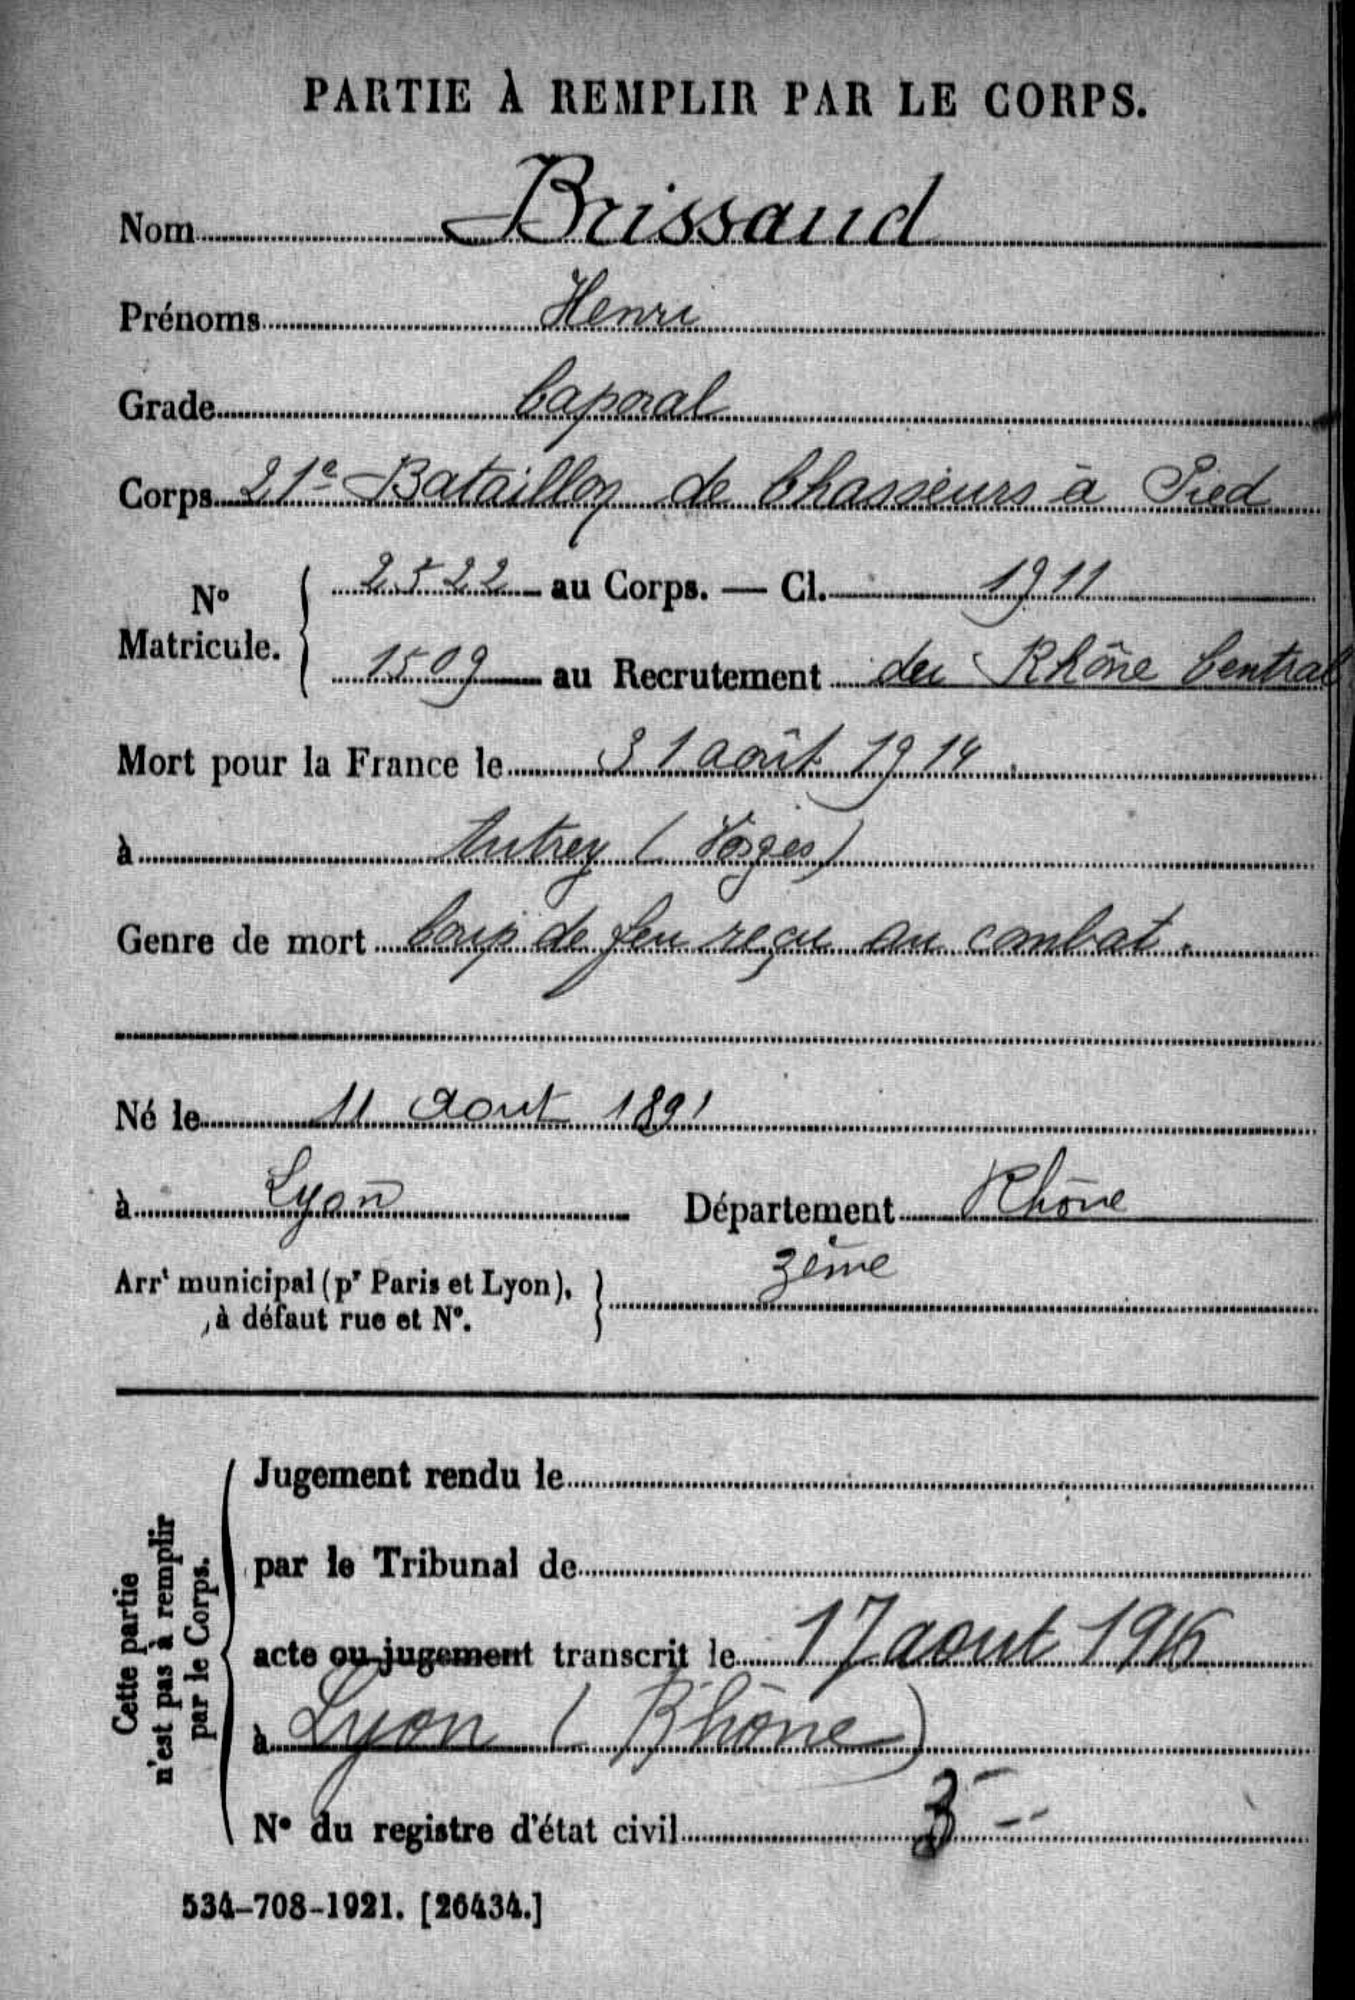 PARTIE À REMPLIR PAR LE CORPS.
Nom Brissaud
Prénoms Henri
Grade Caporal
Corps 21e Bataillon de Chasseurs à Pied
No Matricule. 2522 au Corps. — Cl. 1911
1509 au Recrutement du Rhône Central
Mort pour la France le 31 août 1914.
à Autrey (Vosges)
Genre de mort Coup de feu reçu au combat.
Né le 11 aout 1891
à Lyon Département Rhône
Arrt municipal (pr Paris et Lyon), 3ème
à défaut rue et No.
Cette partie
n'est pas à remplir
par le Corps.
Jugement rendu le
par le Tribunal de
acte ou jugement transcrit le 17 aout 1916
à Lyon (Rhône)
No du registre d'état civil
534-708-1921. [26434.]